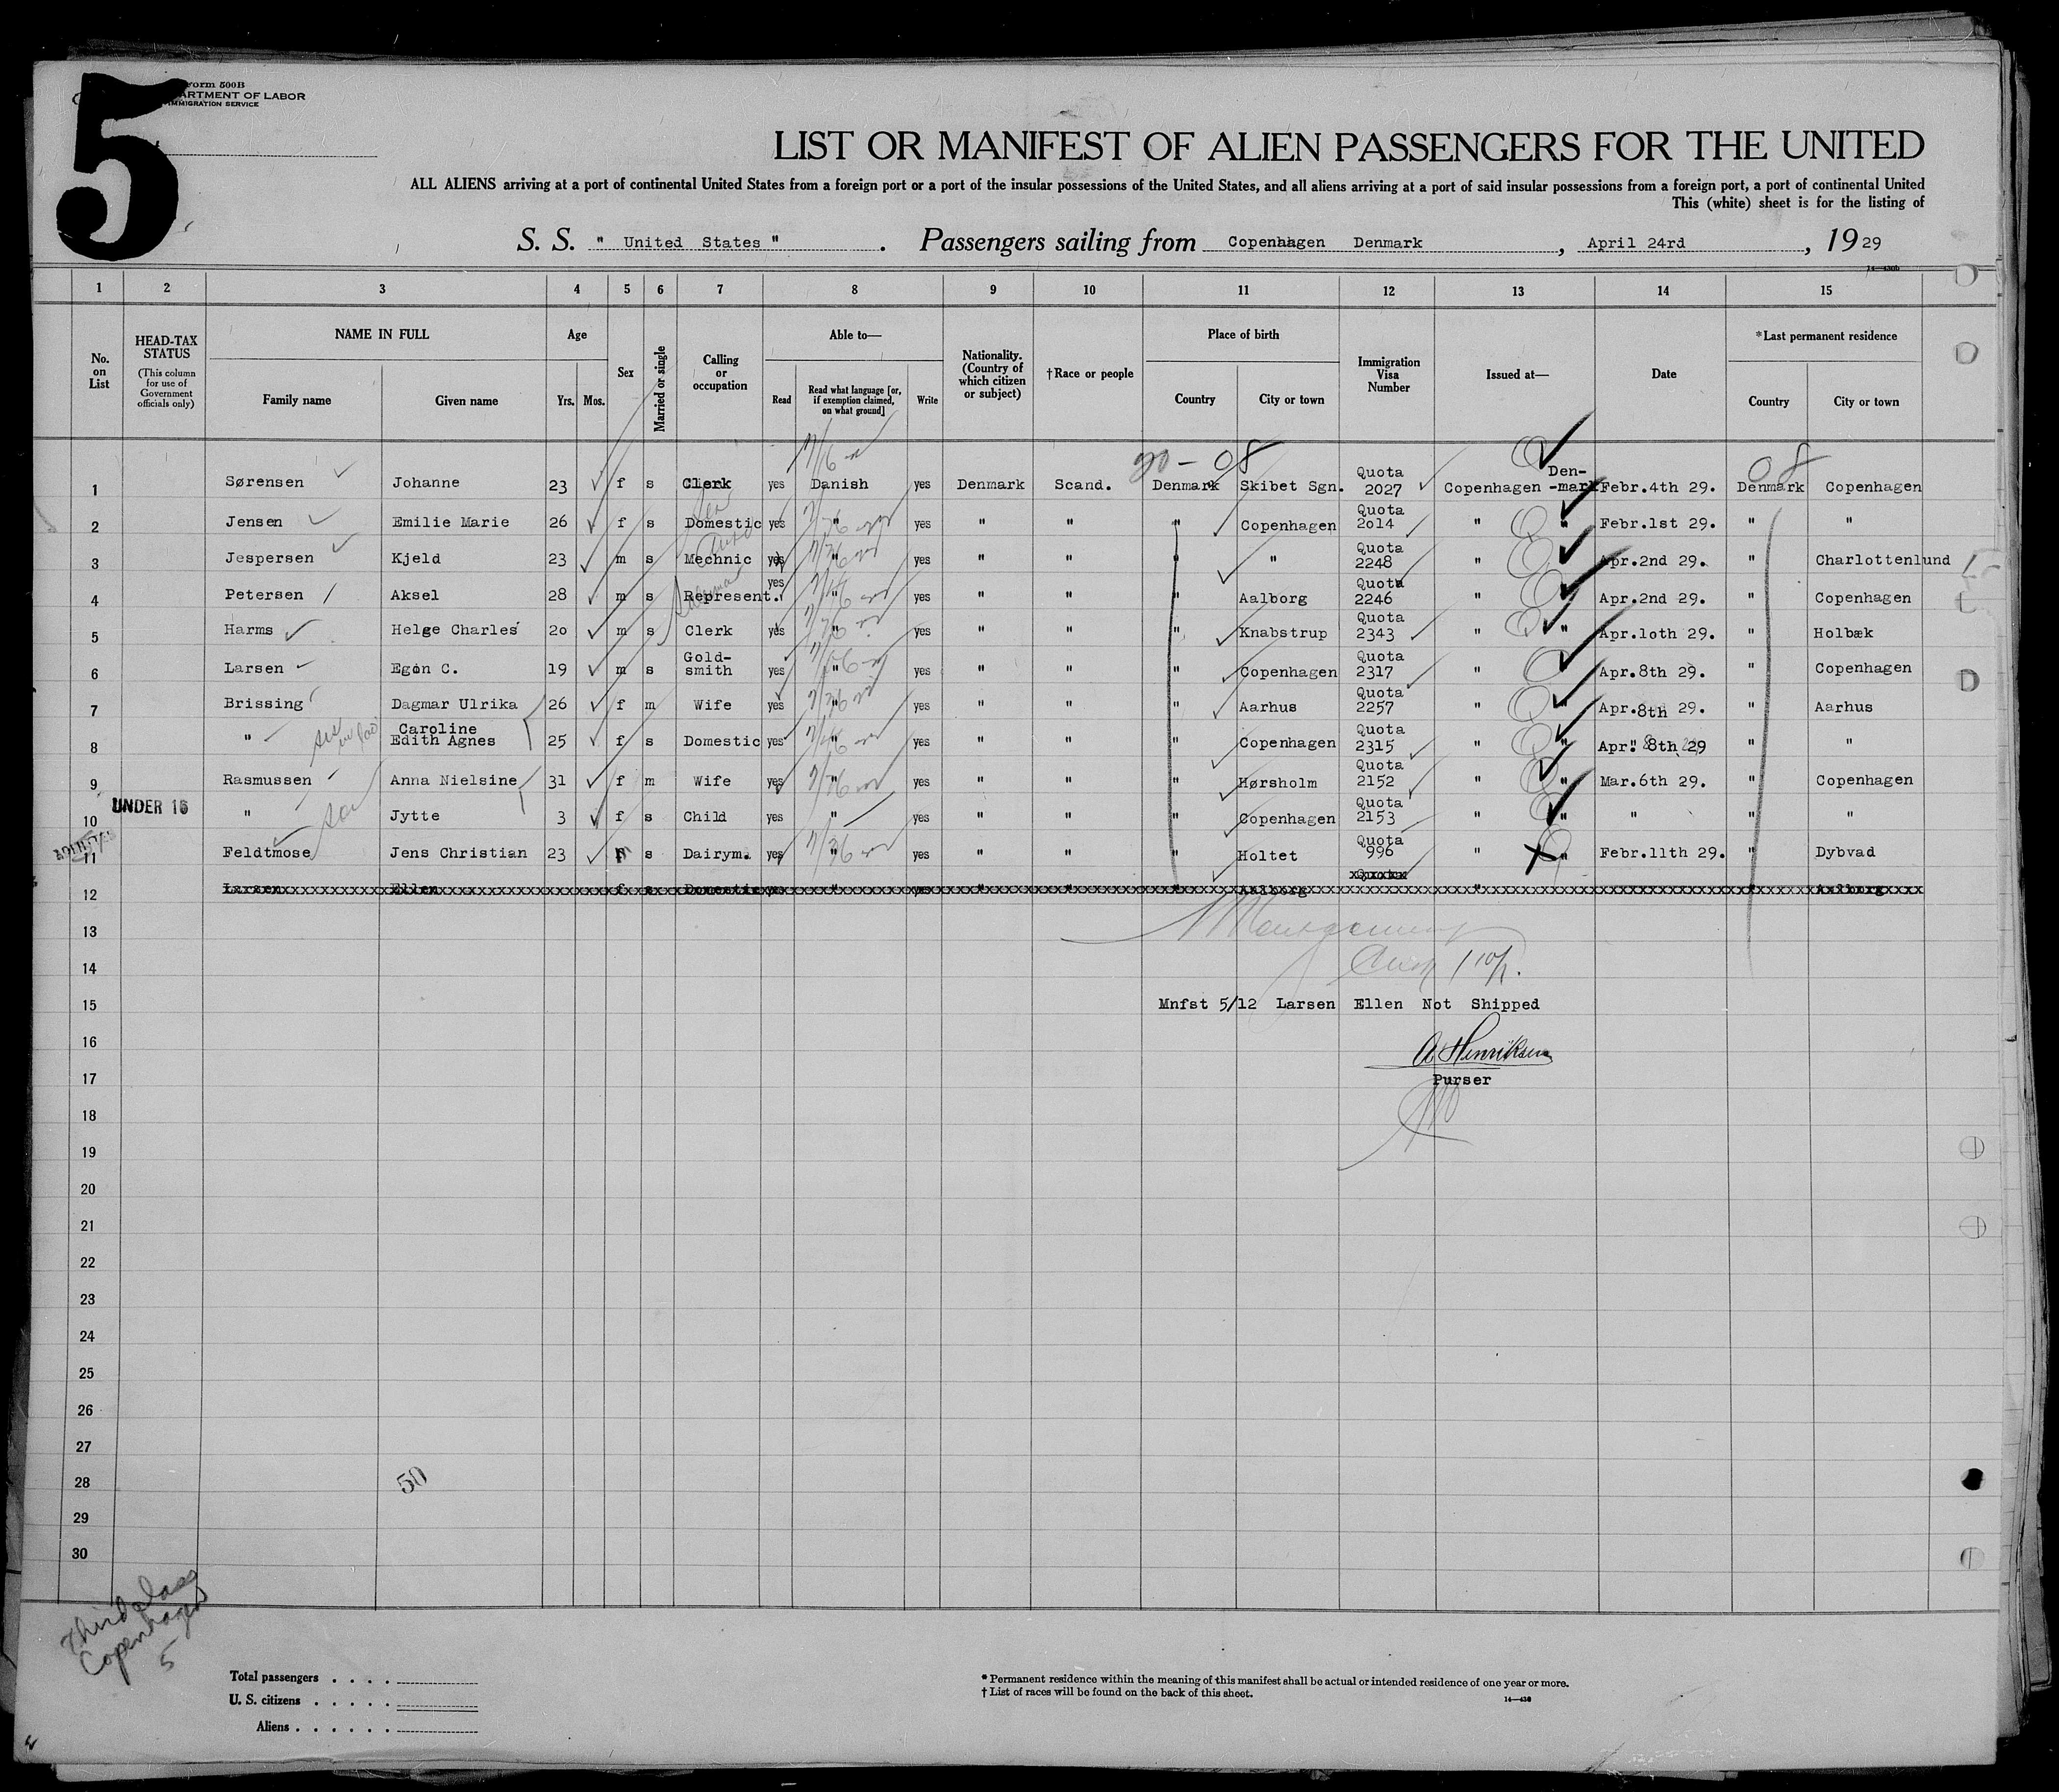 5
Form 500B
DEPARTMENT OF LABOR
IMMIGRATION SERVICE
LIST OR MANIFEST OF ALIEN PASSENGERS FOR THE UNITED
ALL ALIENS arriving at a port of continental United States from a foreign port or a port of the insular possessions of the United States, and all aliens arriving at a port of said insular possessions from a foreign port, a port of continental United
This (white) sheet is for the listing of
S. S. " United States " . Passengers sailing from Copenhagen Denmark , April 24rd , 1929
14—430b
1 2 3 4 5 6 7 8 9 10 11 12 13 14 15
No. on List
HEAD-TAX STATUS
(This column for use of Government officials only)
NAME IN FULL
Family name Given name
Age
Yrs. Mos.
Sex
Married or single
Calling or occupation
Able to—
Read Read what language [or, if exemption claimed, on what ground] Write
Nationality. (Country of which citizen or subject)
†Race or people
Place of birth
Country City or town
Immigration Visa Number
Issued at—
Date
*Last permanent residence
Country City or town
20 - 08 08
1 Sørensen Johanne 23 f s Clerk yes Danish yes Denmark Scand. Denmark Skibet Sgn. Quota 2027 Copenhagen Den-mark Febr.4th 29. Denmark Copenhagen
2 Jensen Emilie Marie 26 f s Domestic yes " yes " " " Copenhagen Quota 2o14 " " Febr.1st 29. " "
3 Jespersen Kjeld 23 m s Mechnic yes " yes " " " " Quota 2248 " " Apr.2nd 29. " Charlottenlund
4 Petersen Aksel 28 m s Represent. yes " yes " " " Aalborg Quota 2246 " " Apr.2nd 29. " Copenhagen
5 Harms Helge Charles 2o m s Clerk yes " yes " " " Knabstrup Quota 2343 " " Apr.1oth 29. " Holbæk
6 Larsen Egon C. 19 m s Gold-smith yes " yes " " " Copenhagen Quota 2317 " " Apr.8th 29. " Copenhagen
7 Brissing Dagmar Ulrika 26 f m Wife yes " yes " " " Aarhus Quota 2257 " " Apr.8th 29. " Aarhus
8 " Caroline Edith Agnes 25 f s Domestic yes " yes " " " Copenhagen Quota 2315 " " Apr. 8th 29 " "
9 Rasmussen Anna Nielsine 31 f m Wife yes " yes " " " Hørsholm Quota 2152 " " Mar.6th 29. " Copenhagen
UNDER 16
10 " Jytte 3 f s Child yes " yes " " " Copenhagen Quota 2153 " " " " "
11 Feldtmose Jens Christian 23 m s Dairym. yes " yes " " " Holtet Quota 996 " " Febr.11th 29. " Dybvad
12 Larsen Ellen f s Domestic yes " yes " " " Aalborg Quota " " Aalborg
13
14
15 Mnfst 5/12 Larsen Ellen Not Shipped
16 A Henriksen
17 Purser
18
19
20
21
22
23
24
25
26
27
28 50
29
30
Third Class
Copenhagen
5
Total passengers . . . .
U. S. citizens . . . . .
Aliens . . . . . .
* Permanent residence within the meaning of this manifest shall be actual or intended residence of one year or more.
† List of races will be found on the back of this sheet.
14—430